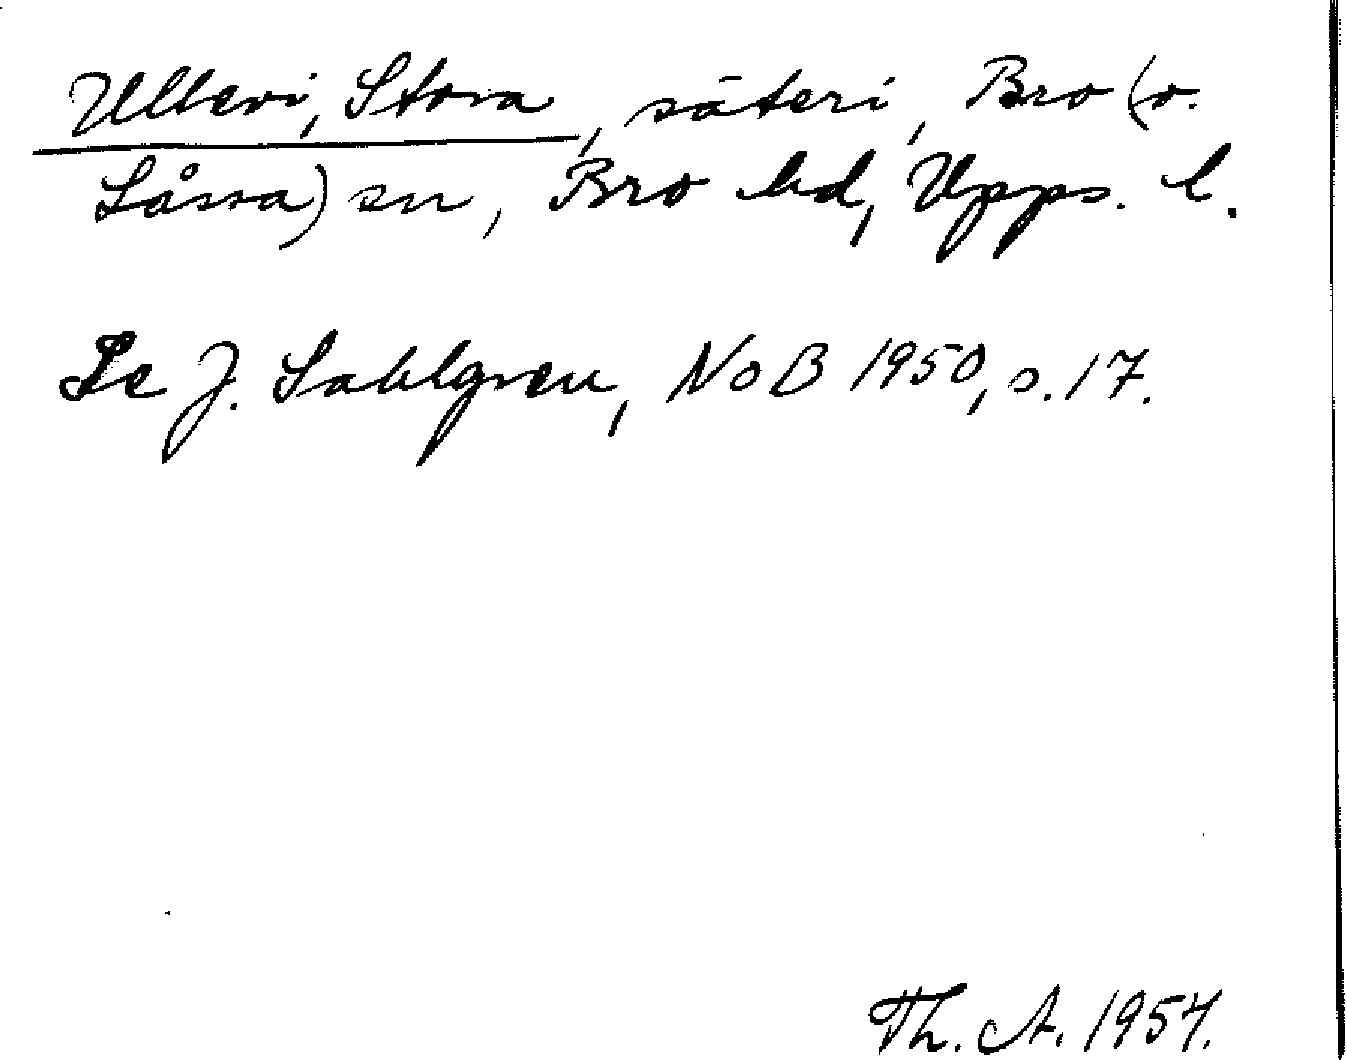 Ullevi, Stora, säteri, Bro (o.
Låssa) sn, Bro hd, Upps. l.
Se J. Sahlgren, NoB 1950, s. 17.
Th. A. 1954.